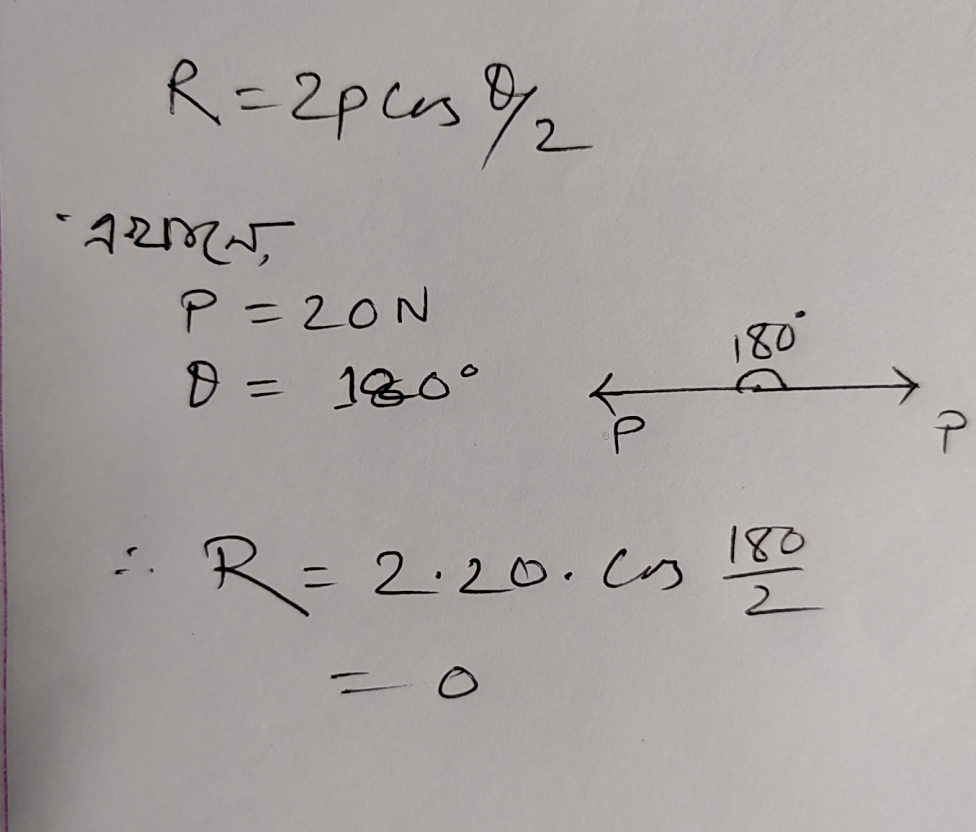 R = 2p cos θ/2
এখানে,
P = 20N
θ = 180°
180°
P P
∴ R = 2.20. Cos 180/2
= 0